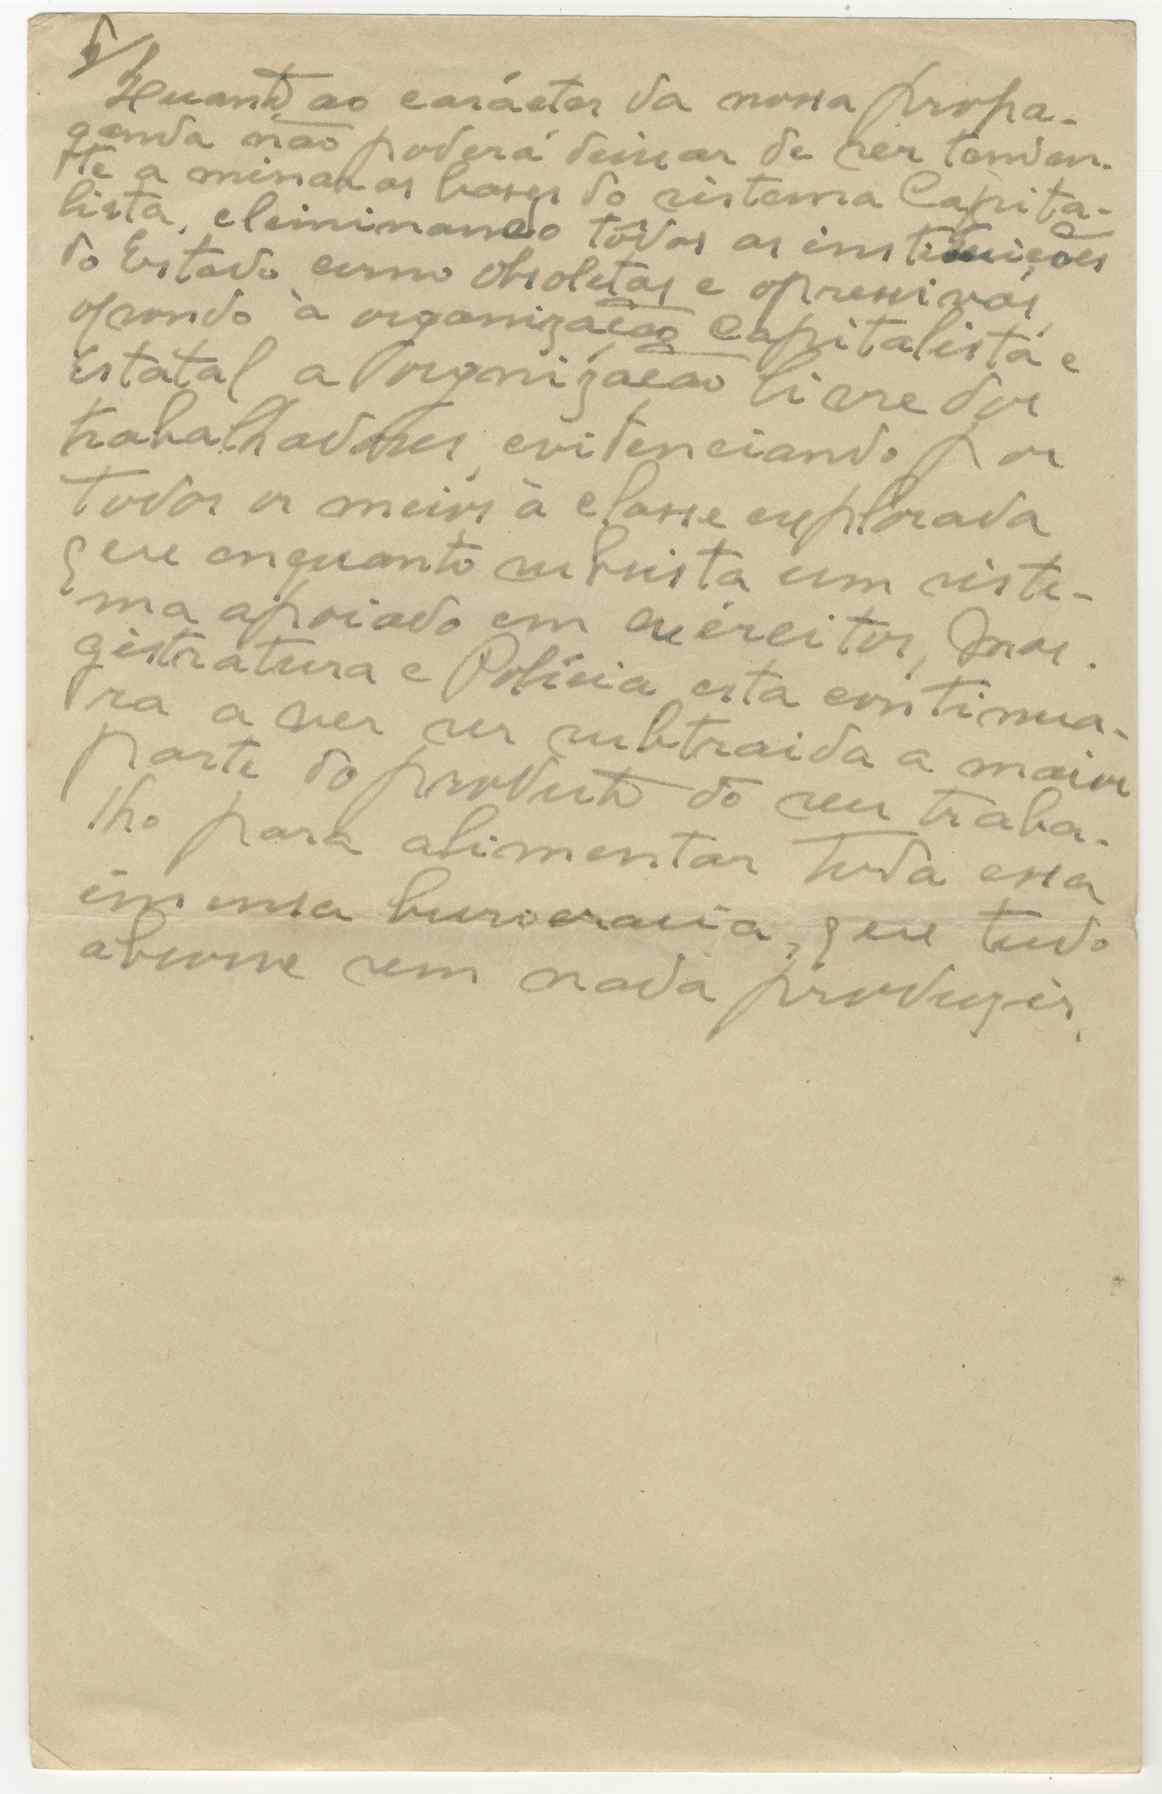 Quanto ao carácter da nossa propa-
ganda não poderá deixar de ser tenden-
te a minar as bases do sistema Capita-
lista, eliminando todas as instituições
do Estado como obsoletas e opressivas,
opondo à organização Capitalista e
Estatal a organização livre dos
trabalhadores, evidenciando por
todos os meios à classe explorada
que enquanto subsista um siste-
ma apoiado em exércitos, Ma-
gistratura e Polícia esta continua-
ra a ver ser subtraida a maior
parte do produto do seu traba-
lho para alimentar toda essa
imensa burocracia, que tudo
absorve sem nada produzir.